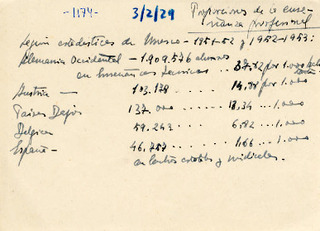 -1174-
3/2/29
Proporciones de la ense-
ñanza profesional
Según estadísticas de Unesco - 1951-52 y 1952-53:
Alemania Occidental - 1.909.576 alumnos
en enseñanzas técnicas ... 37,12 por 1.000
Austria — 103.138 ... por 1.000
Países Bajos 137.000 ..... 13,34 ... 1.000
Bélgica 59.243 ...... 6,82 ... 1.000
España - 46,757 ....... 1,66 ... 1.000
en centros estatales y sindicales.